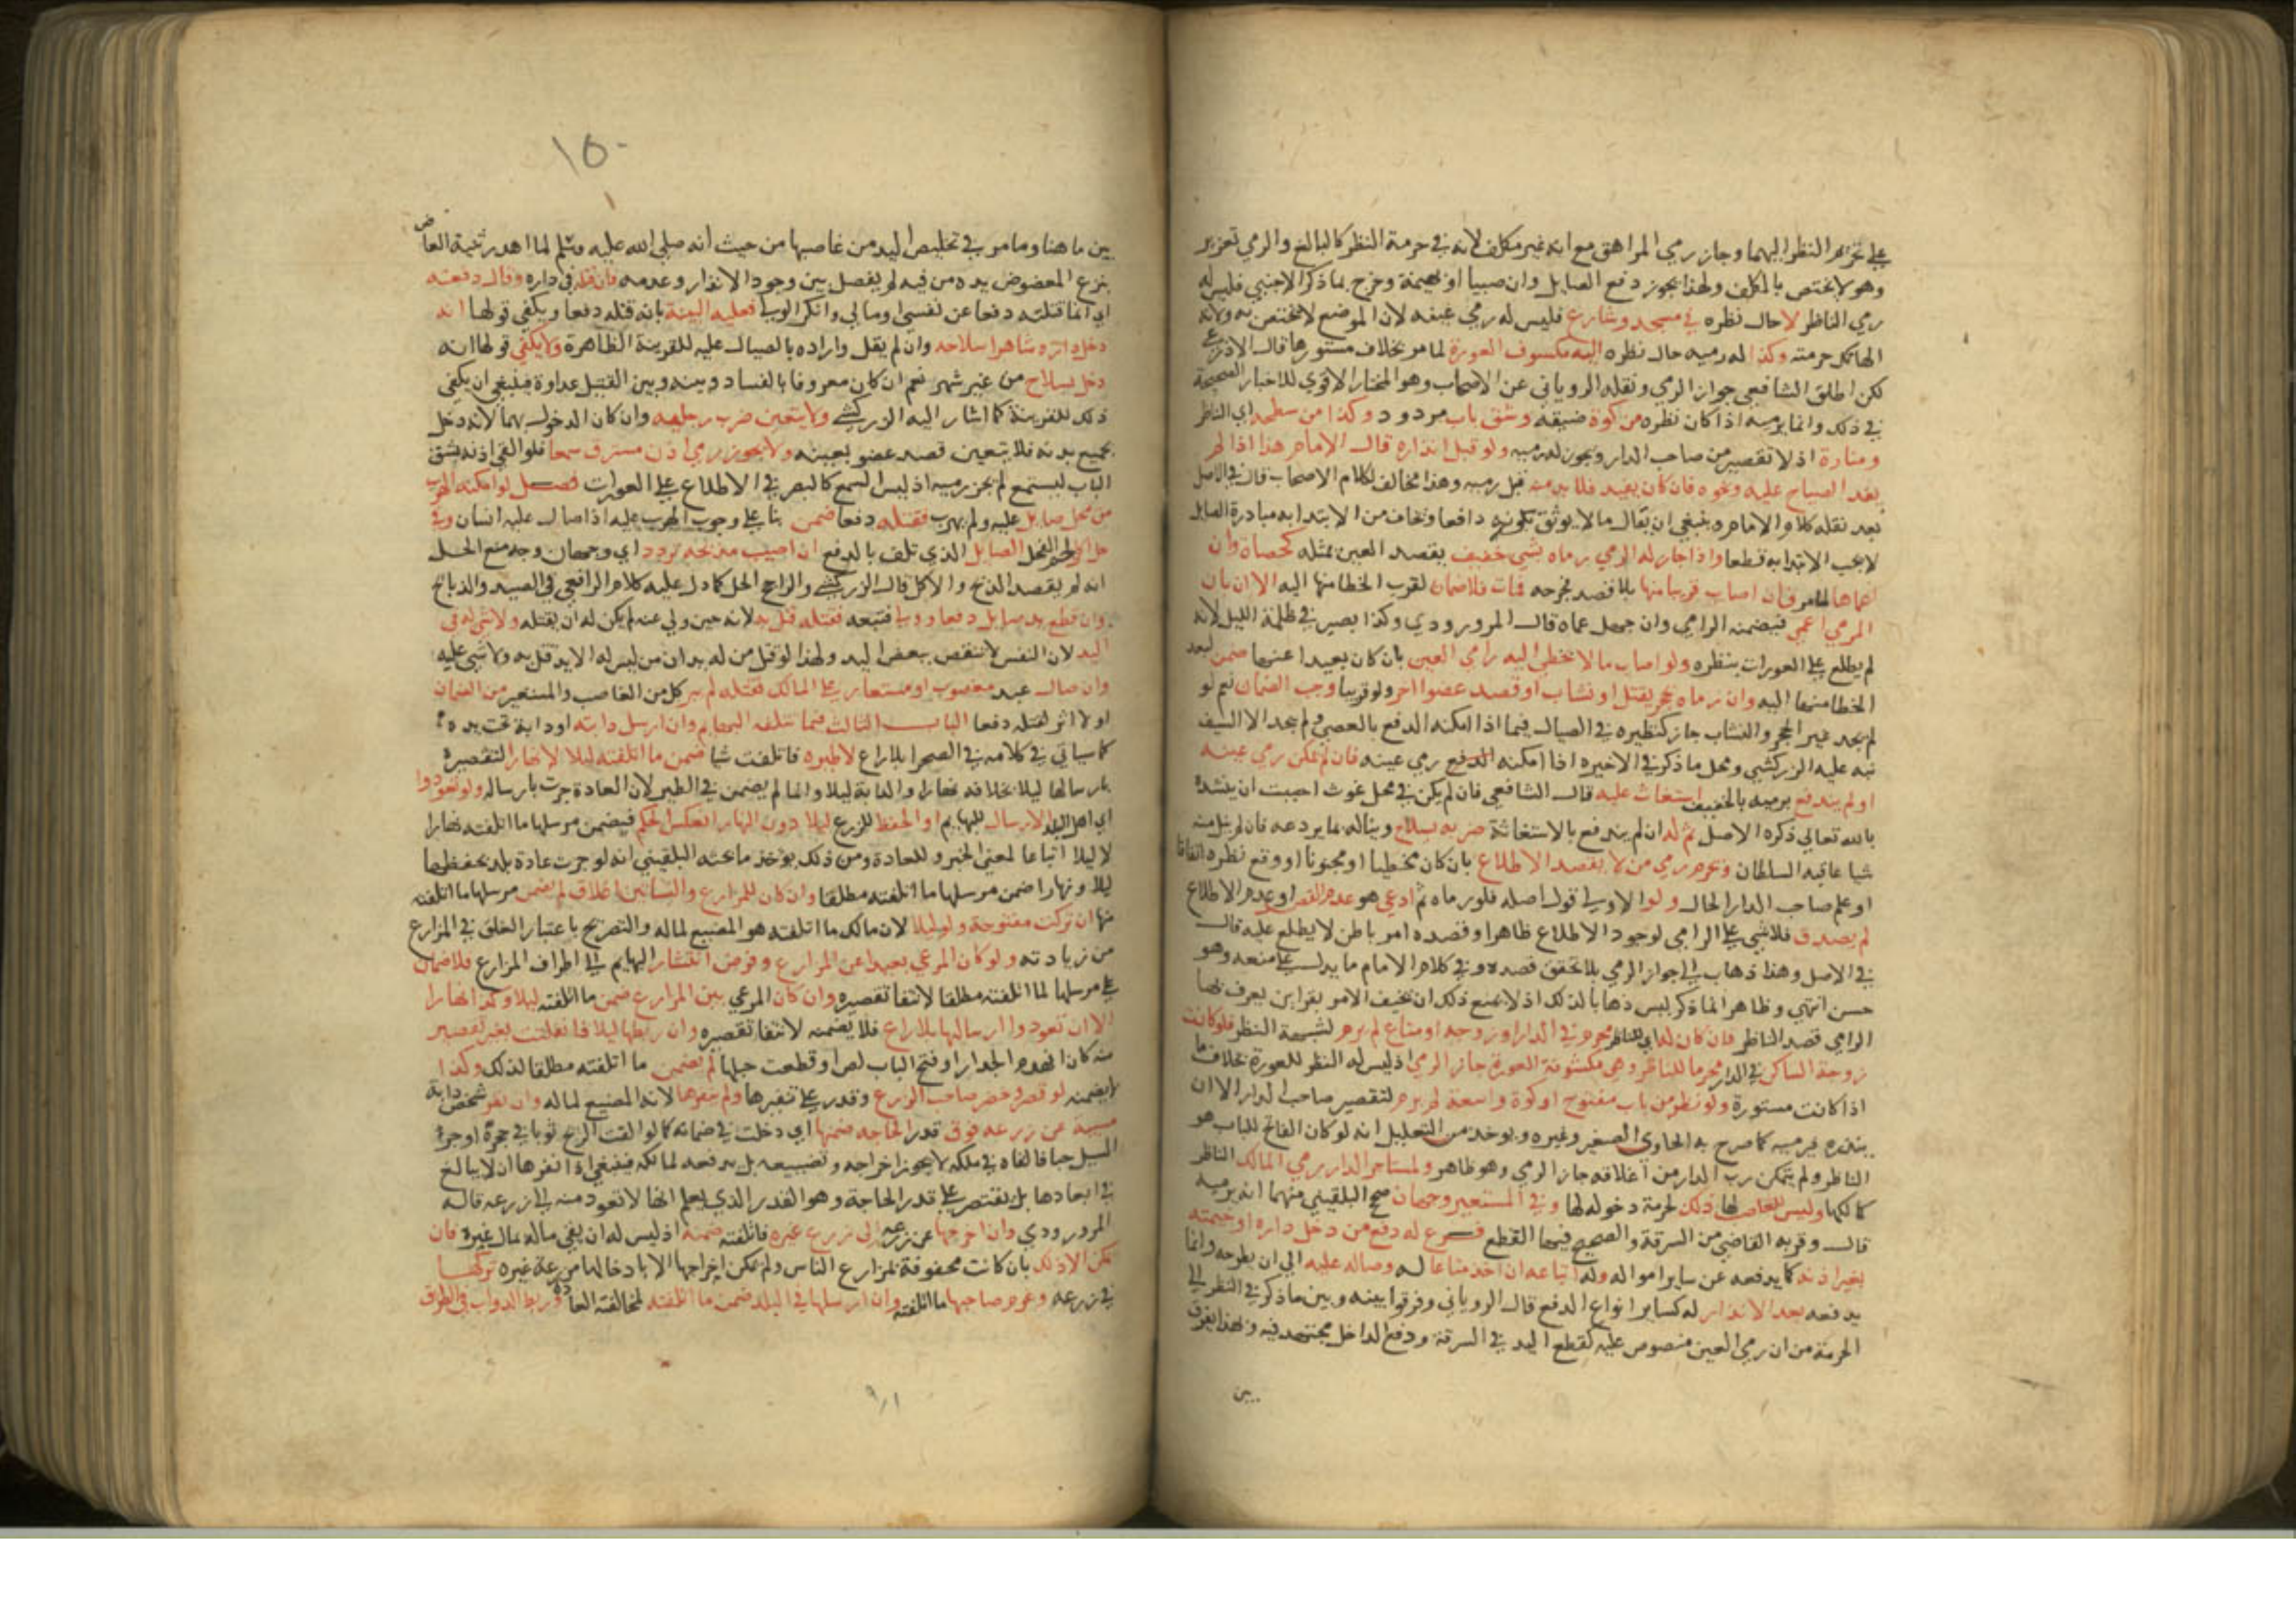 على تحريم النظر اليهما وجاز رمي المراهق مع انه غير مكلف لانه في حرمة النظر كالبالغ والرمي تعزير
وهو لا يختص بالمكلف ولهذا يجوز دفع الصايل وان صبيا او بهيمة وخرج بما ذكر الاجنبي فليس له
رمي الناظر لا حال نظره في مسجد وشارع فليس له رمي عينه لان الموضع لا يختص به ولانه
الهاتك حرمته وكذا له رميه حال نظره اليه مكسوف العورة لما مر بخلاف مستورها قال الاذرعي
لكن اطلق الشافعي جواز الرمي ونقله الروياني عن الاصحاب وهو المختار الاقوي للاخبار الصحيحة
في ذلك وانما يرميه اذا كان نظره من كوة ضيقة وشق باب مردود وكذا من سطحه اي الناظر
ومنارة اذ لا تقصير من صاحب الدار ويجوز له رميه ولو قبل انذاره قال الامام هذا اذا لم
يفد الصياح عليه ونحوه فان كان يفيد فلا بد منه قبل رميه وهذا مخالف لكلام الاصحاب قال في الاصل
بعد نقله كلام الامام وينبغي ان يقال مالا يوثق بكونه دافعا ويخاف من الابتدا به مبادرة الصايل
لا يجب الابتدا به قطعا واذا جاز له الرمي رماه بشي خفيف يقصد العين بمثله كحصاة وان
اعماها لما مر فان اصاب قريبا منها بلا قصد فجرحه فمات فلا ضمان لقرب الخطا منها اليه الا ان بان
المرمي اعمى فيضمنه الرامي وان جهل عماه قال المروروذي وكذا بصير في ظلمة الليل لانه
لم يطلع على العورات بنظره ولو اصاب مالا يخطي اليه رامي العين بان كان بعيدا عنها ضمن لبعد
الخطا منها اليه وان رماه بحجر يقتل او نشاب او قصد عضوا اخر ولو قريبا وجب الضمان نعم لو
لم يجد غير الحجر والنشاب جاز كنظيره في الصيال فيما اذا امكنه الدفع بالعصى ولم يجد الا السيف
نبه عليه الزركشي ومحل ما ذكر في الاخيرة اذا امكنه الدفع رمي عينه فان لم يمكن رمي عينه
او لم يندفع برميه بالخفيف استغاث عليه قال الشافعي فان لم يكن في محل غوث احببت ان ينشده
بالله تعالى ذكره الاصل ثم له ان لم يندفع بالاستغاثة ضربه بسلاح ويناله بما يردعه فان لم ينل منه
شيا عاقبه السلطان ويحرم رمي من لا يقصد الاطلاع بان كان مخطيا او مجنونا او وقع نظره اتفاقا
او علم صاحب الدار الحال ولو الاولى قول اصله فلو رماه ثم ادعى هو عدم القصد او عدم الاطلاع
لم يصدق فلا شي على الرامي لوجود الاطلاع ظاهرا وقصده امر باطن لا يطلع عليه قال
في الاصل وهذا ذهاب الى جواز الرمي بلا تحقق قصده وفي كلام الامام ما يدل على منعه وهو
حسن انتهى وظاهر انما ذكر ليس ذهابا لذلك اذ لا يمنع ذلك ان يخيف الامر بقراين يعرف بها
الرامي قصد الناظر فان كان له اي للناظر محرم في الدار او زوجه او متاع لم يرم لشبهة النظر فلو كانت
زوجة الساكن في الدار محرما للناظر وهي مكشوفة العورة جاز الرمي اذ ليس له النظر للعورة بخلاف ما
اذا كانت مستورة ولو نظر من باب مفتوح او كوة واسعة لم يرم لتقصير صاحب الدار الا ان
ينذره فيرميه كما صرح به الحاوي الصغير وغيره ويوخذ من التعليل انه لو كان الفاتح للباب هو
الناظر ولم يتمكن رب الدار من اغلاقه جاز الرمي وهو ظاهر ولمستاجر الدار رمي المالك الناظر
كمالكها وليس للغاصب لها ذلك لحرمة دخوله لها وفي المستعير وجهان صحح البلقيني منهما انه يرميه
قال وقربه القاضي من السرقة والصحيح فيها القطع فــرع له دفع من دخل داره او خيمته
بغير اذنه كما يدفعه عن ساير امواله وله اتباعه ان اخذ متاعا له وصاله عليه الي ان يطرحه وانما
يدفعه بعد الانذار له كساير انواع الدفع قال الروياني وفرقوا بينه وبين ما ذكر في النظر الى
الحرمة من ان رمي العين منصوص عليه كقطع اليد في السرقة ودفع الداخل مجتهد فيه وبهذا يفرق
بين
١٥٠
بين ما هنا وما مر في تخليص اليد من غاصبها من حيث أنه صلى الله عليه وسلم لما اهدر ثنية العاض
بنزع المعضوض يده من فيه لم يفصل بين وجود الانذار وعدمه فان قتله في داره وقال دفعته
اي انما قتلته دفعا عن نفسي ومالي وانكر الولي فعليه البينة بانه قتله دفعا ويكفي قولها انه
دخل داره شاهرا سلاحه وان لم يقل واراده بالصيال عليه للقرينة الظاهرة ولا يكفي قولها انه
دخل بسلاح من غير شهر نعم ان كان معروفا بالفساد وبينه وبين القتيل عداوة فينبغي ان يكفي
ذلك للقرينة كما اشار اليه الزركشي ولا يتعين ضرب رجليه وان كان الدخول بهما لانه دخل
بجميع بدنه فلا يتعين قصد عضو بعينه ولا يجوز رمي اذن مسترق سمعا فلو القى اذنه بشق
الباب ليستمع لم يجز رميه اذ ليس السمع كالبصر في الاطلاع على العورات فصــل لو امكنه الهرب
من فحل صايل عليه ولم يهرب فقتله دفعا ضمن بنا على وجوب الهرب عليه اذا صال عليه انسان وفي
حل اكل لحم الفحل الصايل الذي تلف بالدفع ان اصيب مذبحه تردد اي وجهان وجه منع الحل
انه لم يقصد الذبح والاكل قال الزركشي والراجح الحل كما دل عليه كلام الرافعي في الصيد والذبائح
وان قطع يد صايل دفعا وولى فتبعه فقتله قتل به لانه حين ولى عنه لم يكن له ان يقتله ولا شي له في
اليد لان النفس لا تنقص ببعض اليد ولهذا لو قتل من له يدان من ليس له الا يد قتل به ولا شي عليه
وان صال عبد مغصوب او مستعار على المالك فقتله لم يبر كل من الغاصب والمستعير من الضمان
اذ لا اثر لقتله دفعا البــاب الثالث فيما تتلفه البهايم وان ارسل دابته او دابة تحت يده
كما سياتي في كلامه في الصحرا بلا راع لا طيره فاتلفت شيا ضمن ما اتلفته ليلا لا نهارا لتقصيره
بارسالها ليلا بخلافه نهارا والدابة ليلا وانما لم يضمن في الطير لان العادة جرت بارساله ولو تعودوا
اي اهل البلد الارسال للبهايم او الحفظ للزرع ليلا دون النهار انعكس الحكم فيضمن مرسلها ما اتلفته نهارا
لا ليلا اتباعا لمعنى الخبر وللعادة ومن ذلك يوخذ ما بحثه البلقيني انه لو جرت عادة بلد بحفظها
ليلا ونهارا ضمن مرسلها ما اتلفته مطلقا وان كان للمزارع والبساتين اغلاق لم يضمن مرسلها ما اتلفته
منها ان تركت مفتوحة ولو ليلا لان مالك ما اتلفته هو المضيع لماله والتصريح باعتبار الغلق في المزارع
من زيادته ولو كان المرعي بعيدا عن المزارع وفرض انتشار البهايم الى اطراف المزارع فلا ضمان
على مرسلها لما اتلفته مطلقا لانتفا تقصيره وان كان المرعي بين المزارع ضمن ما اتلفته ليلا وكذا نهارا
الا ان تعودوا ارسالها بلا راع فلا يضمنه لانتفا تقصيره وان ربطها ليلا فانفلتت بغير تقصير
منه كان انهدم الجدار او فتح الباب لص او قطعت حبلها لم يضمن ما اتلفته مطلقا لذلك وكذا
لا يضمنه لو قصر وحضر صاحب الزرع وقدر على تنفيرها ولم ينفرها لانه المضيع لماله وان نفر شخص دابة
مسيبة عن زرعه فوق قدر الحاجه ضمنها اي دخلت في ضمانه كما لو القت الريح ثوبا في حجره او جر
السيل حبا فالقاه في ملكه لا يجوز اخراجه وتضييعه بل يدفعه لمالكه فينبغي اذا نفرها ان لا يبالغ
في ابعادها بل يقتصر على قدر الحاجة وهو القدر الذي يعلم انها لا تعود منه الى زرعه قاله
المروروذي وان اخرجها عن زرعه الى زرع غيره فاتلفته ضمنه اذ ليس له ان يقي ماله بمال غيره فان
لم يمكن الا ذلك بان كانت محفوفة بمزارع الناس ولم يمكن اخراجها الا بادخالها مزرعة غيره تركها
في زرعه وغرم صاحبها ما اتلفته وان ارسلها في البلد ضمن ما اتلفته لمخالفته العادة وربط الدواب في الطريق